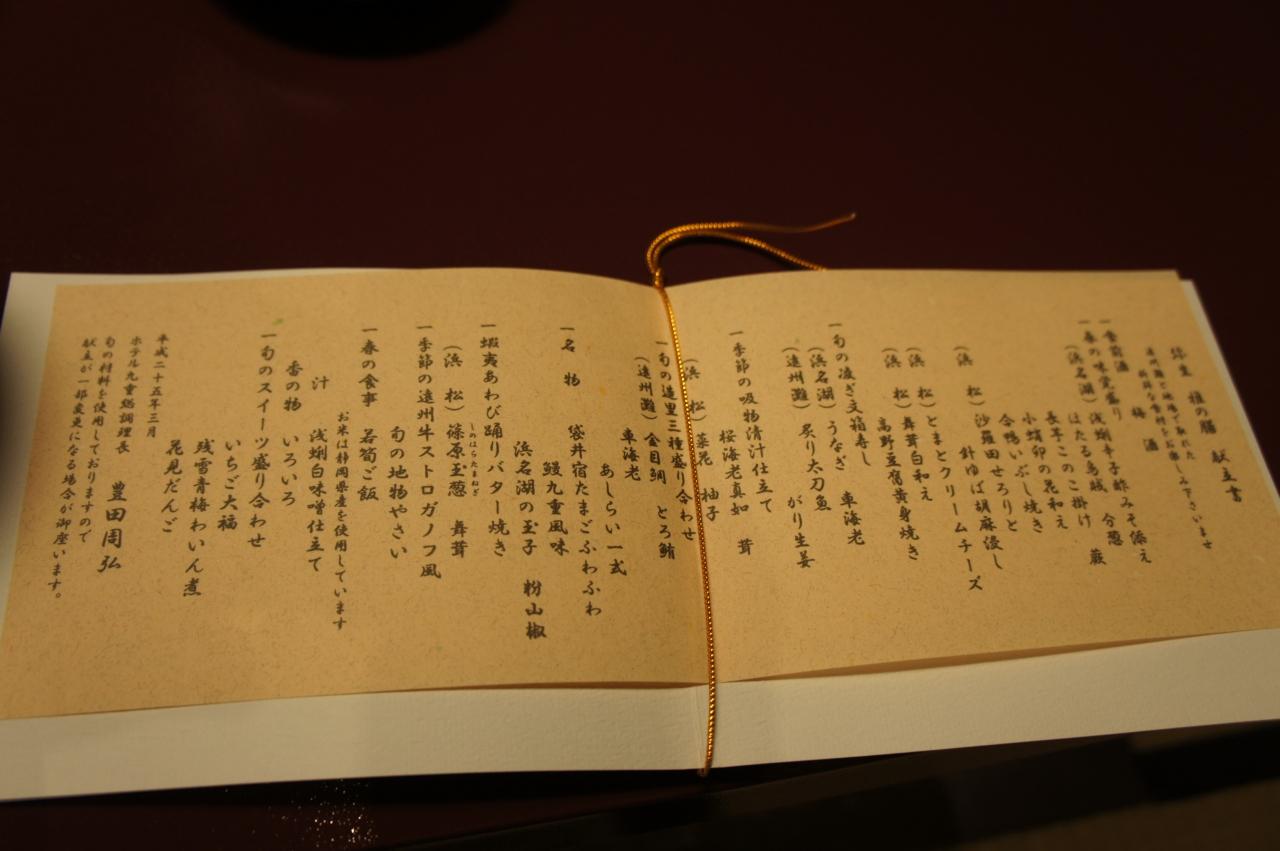 献立書
弥生 雅の膳
遠州灘と地場で取れた
新鮮な食材をお楽しみ下さいませ
一食前酒 梅酒
一春の味覚盛り 浅蜊辛子酢みそ添え
（浜名湖） ほたる烏賊 分葱 蕨
長芋このこ掛け
小蛸卯の花和え
合鴨いぶし焼き
沙羅田せろりと
（浜 松） 針ゆば胡麻浸し
とまとクリームチーズ
（浜 松） 舞茸白和え
（浜 松） 高野豆腐黄身焼き
一旬の凌ぎ 文箱寿し
（浜名湖） うなぎ 車海老
（遠州灘） 炙り太刀魚
がり生姜
一季節の吸物 清汁仕立て
桜海老真如 茸
（浜 松） 菜花 柚子
一旬の造里 三種盛り合わせ
（遠州灘） 金目鯛 とろ鮪
車海老
あしらい一式
一名 物 袋井宿たまごふわふわ
鰻九重風味
浜名湖の玉子 粉山椒
一蝦夷あわび踊りバター焼き
（浜 松） 篠原玉葱 舞茸
しのはらたまねぎ
一季節の遠州牛ストロガノフ風
旬の地物やさい
一春の食事 若筍ご飯
お米は静岡県産を使用しています
汁 浅蜊白味噌仕立て
香の物 いろいろ
一旬のスイーツ盛り合わせ
いちご大福
残雪青梅わいん煮
花見だんご
平成二十五年三月
ホテル九重総調理長 豊田周弘
旬の材料を使用しておりますので
献立が一部変更になる場合が御座います。